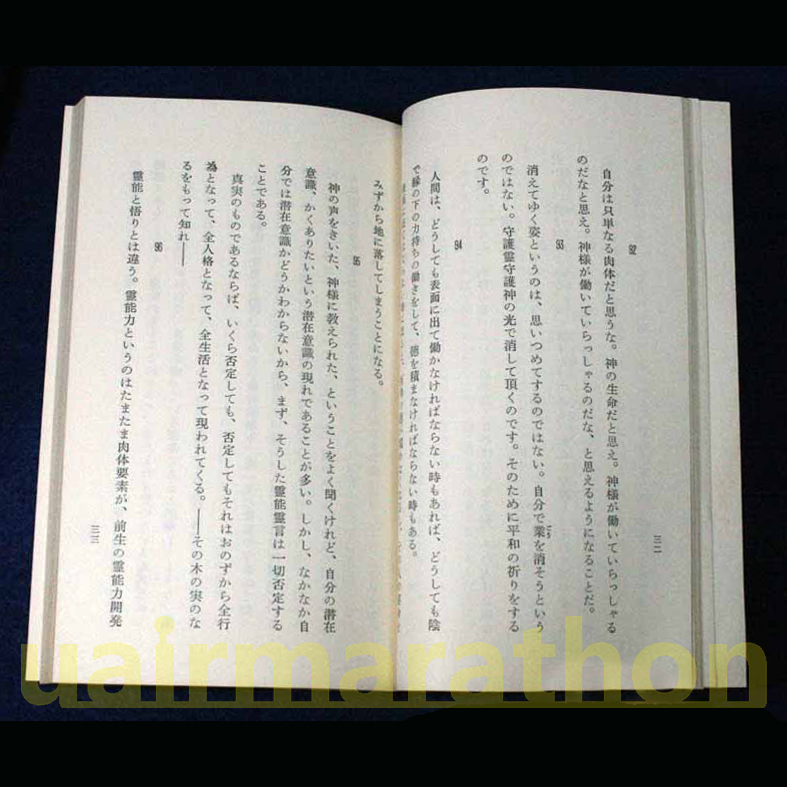 92
自分は只単なる肉体だと思うな。神の生命だと思え。神様が働いていらっしゃる
のだなと思え。神様が働いていらっしゃるのだな、と思えるようになることだ。
93
消えてゆく姿というのは、思いつめてするのではない。自分で業を消そうという
のではない。守護霊守護神の光で消して頂くのです。そのために平和の祈りをする
のです。
94
人間は、どうしても表面に出て働かなければならない時もあれば、どうしても陰
で縁の下の力持ちの働きをして、徳を積まなければならない時もある。
三二
みずから地に落してしまうことになる。
95
神の声をきいた、神様に教えられた、ということをよく聞くけれど、自分の潜在
意識、かくありたいという潜在意識の現れであることが多い。しかし、なかなか自
分では潜在意識かどうかわからないから、まず、そうした霊能霊言は一切否定する
ことである。
真実のものであるならば、いくら否定しても、否定してもそれはおのずから全行
為となって、全人格となって、全生活となって現われてくる。――その木の実のな
るをもって知れ――
96
霊能と悟りとは違う。霊能力というのはたまたま肉体要素が、前生の霊能力開発
三三
uairmarathon